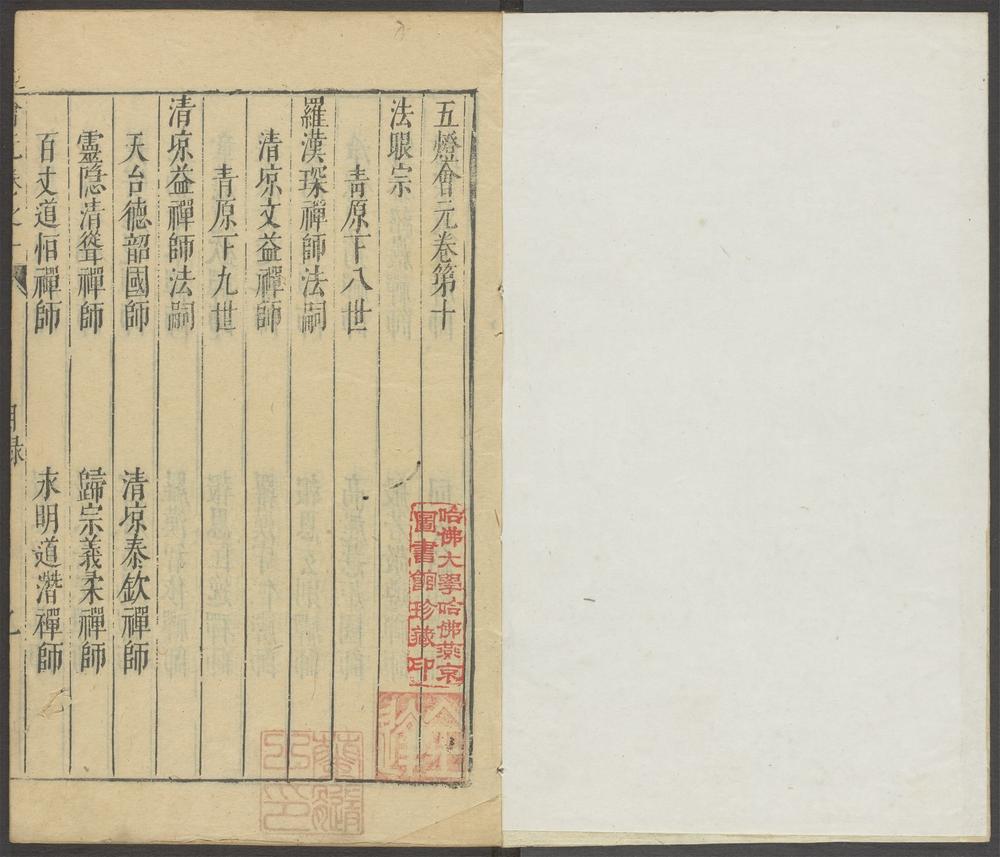 五燈會元卷第十
法眼宗
青原下八世
羅漢琛禪師法嗣
清凉文益禪師
青原下九世
清凉益禪師法嗣
天台德韶國師 清凉泰欽禪師
靈隱清聳禪師 歸宗義柔禪師
百丈道恒禪師 永明道潛禪師
目録
哈佛大學哈佛燕京
圖書館珍藏印